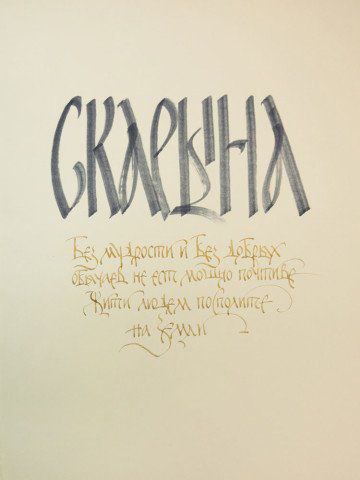 СКАРЫНА
Без мудрости и без добрых
обычаев не ест мощно почтиве
жити людем посполите
на земли